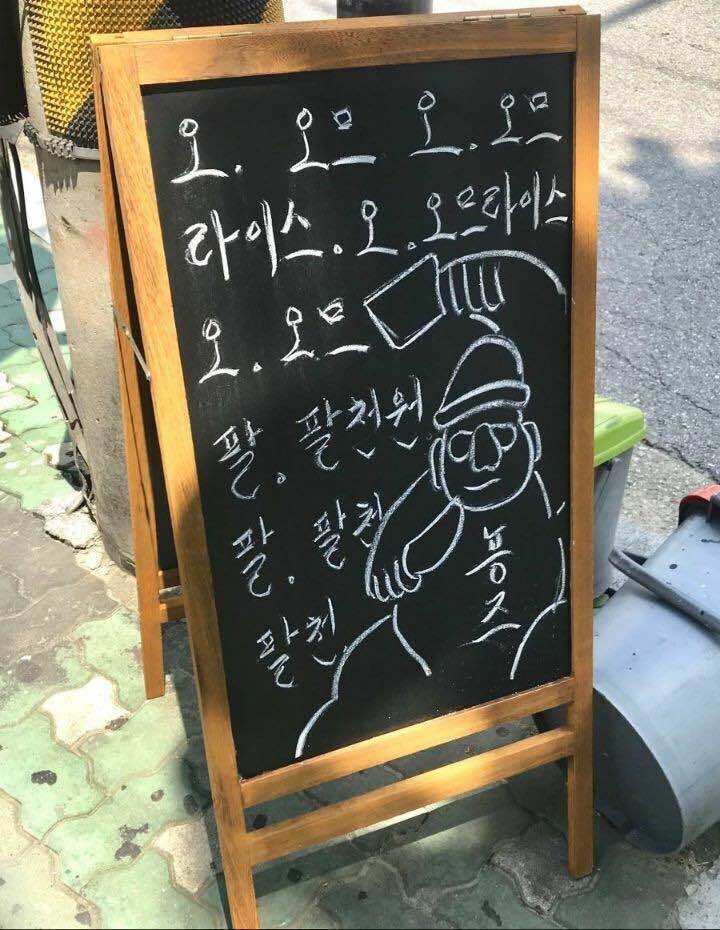 오. 오므 오. 오므
라이스. 오. 오므라이스
오. 오므
팔. 팔천원
팔. 팔천
팔천
뽕
즈